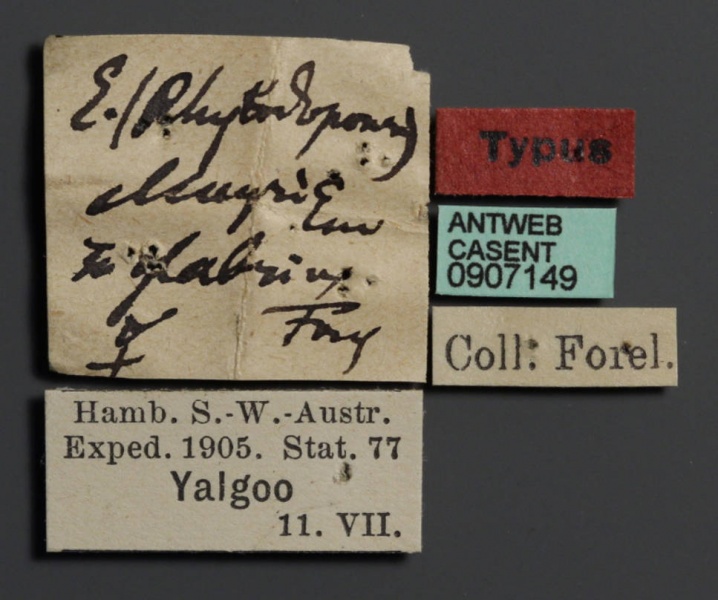 E. (Rhytidoponera)
Mayri Em
v. glabrius
☿ Forel
Typus
ANTWEB
CASENT
0907149
Coll. Forel.
Hamb. S.-W.-Austr.
Exped. 1905. Stat. 77
Yalgoo
11. VII.